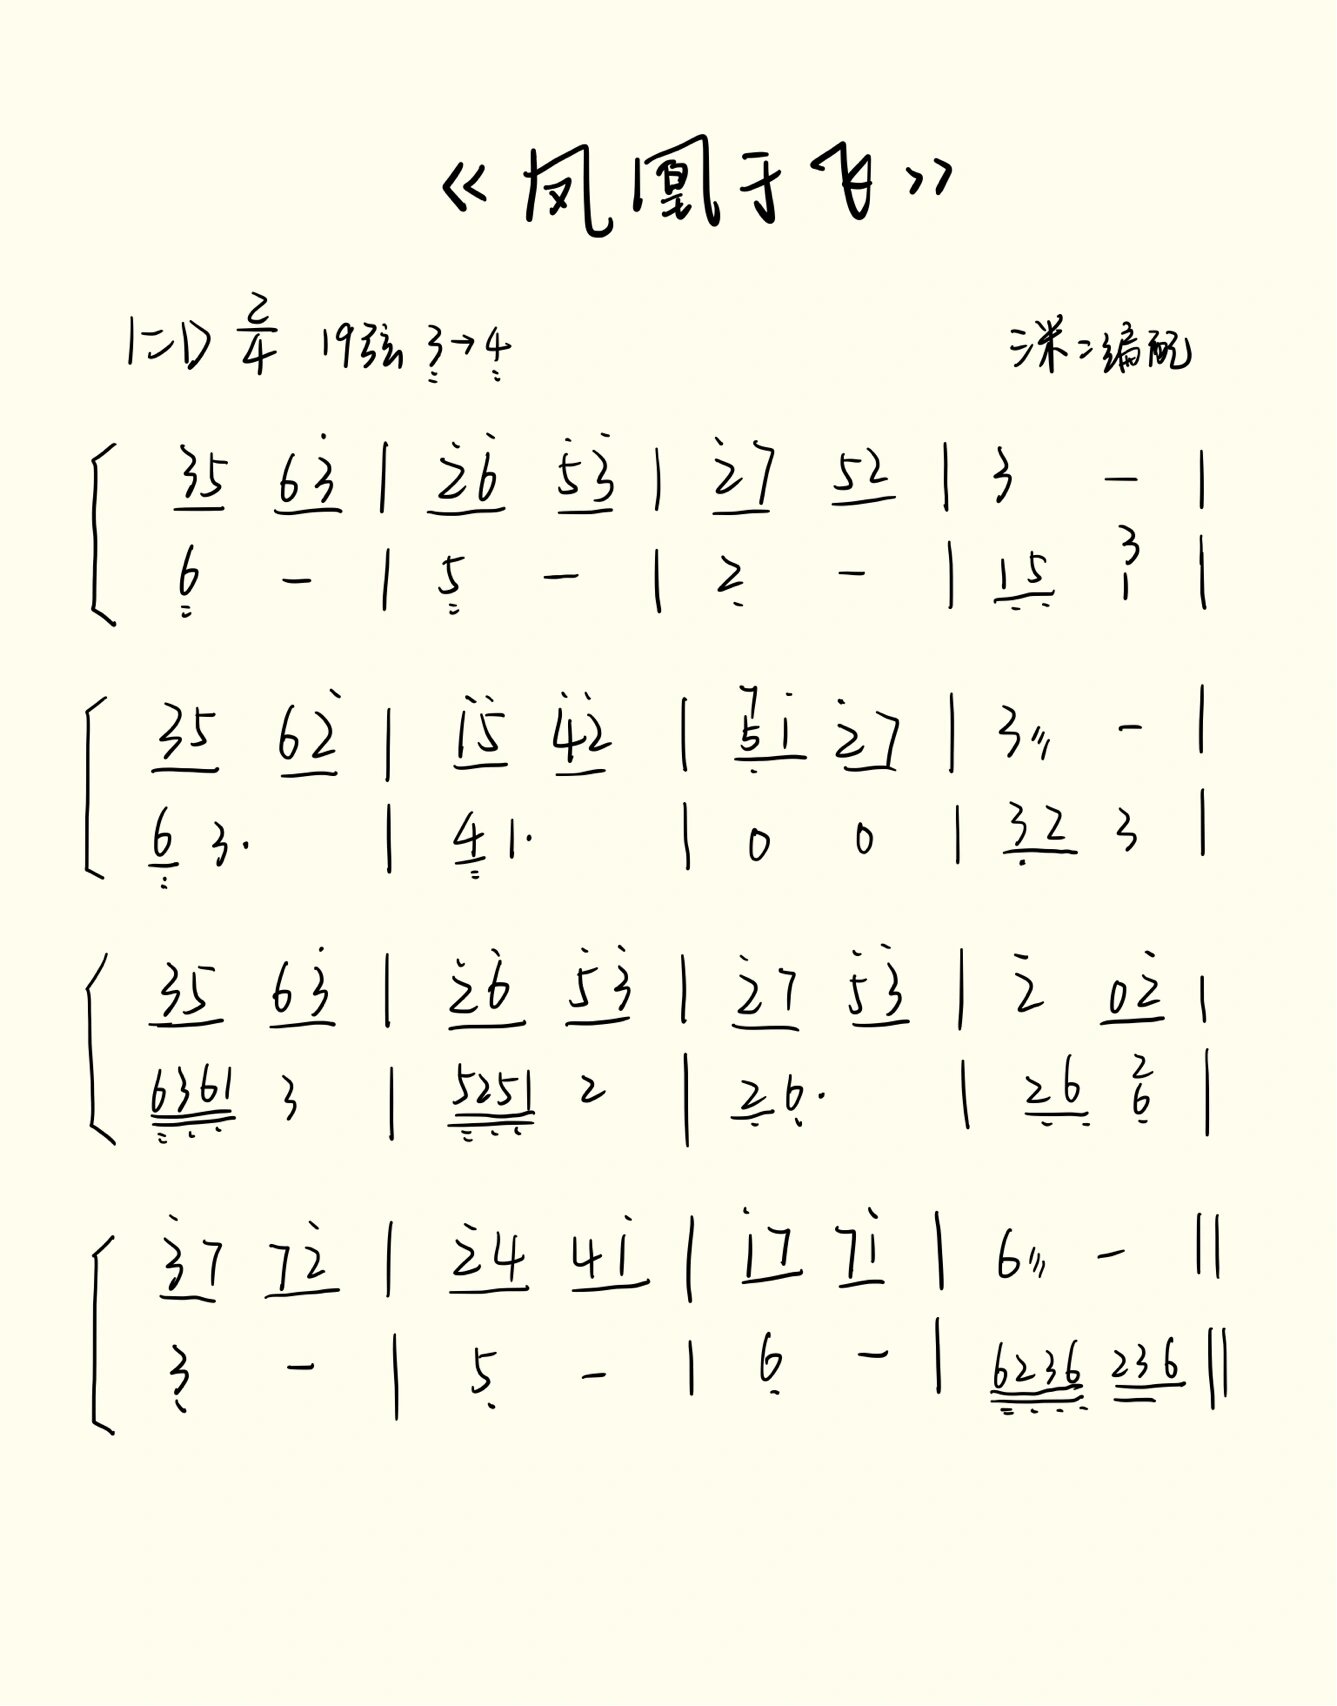 《凤凰于飞》
1=D 2/4 19弦 3→4 编配
35 63 | 26 53 | 27 52 | 3 - |
6 - | 5 - | 2 - | 15 3 1 |
35 62 | 15 42 | 7 51 27 | 3 /// - |
6 3· | 4 1· | 0 0 | 32 3 |
35 63 | 26 53 | 27 53 | 2 02 |
6361 3 | 5251 2 | 26· | 26 2 6 |
37 72 | 24 41 | 17 71 | 6 /// - ||
3 - | 5 - | 6 - | 6236 236 ||